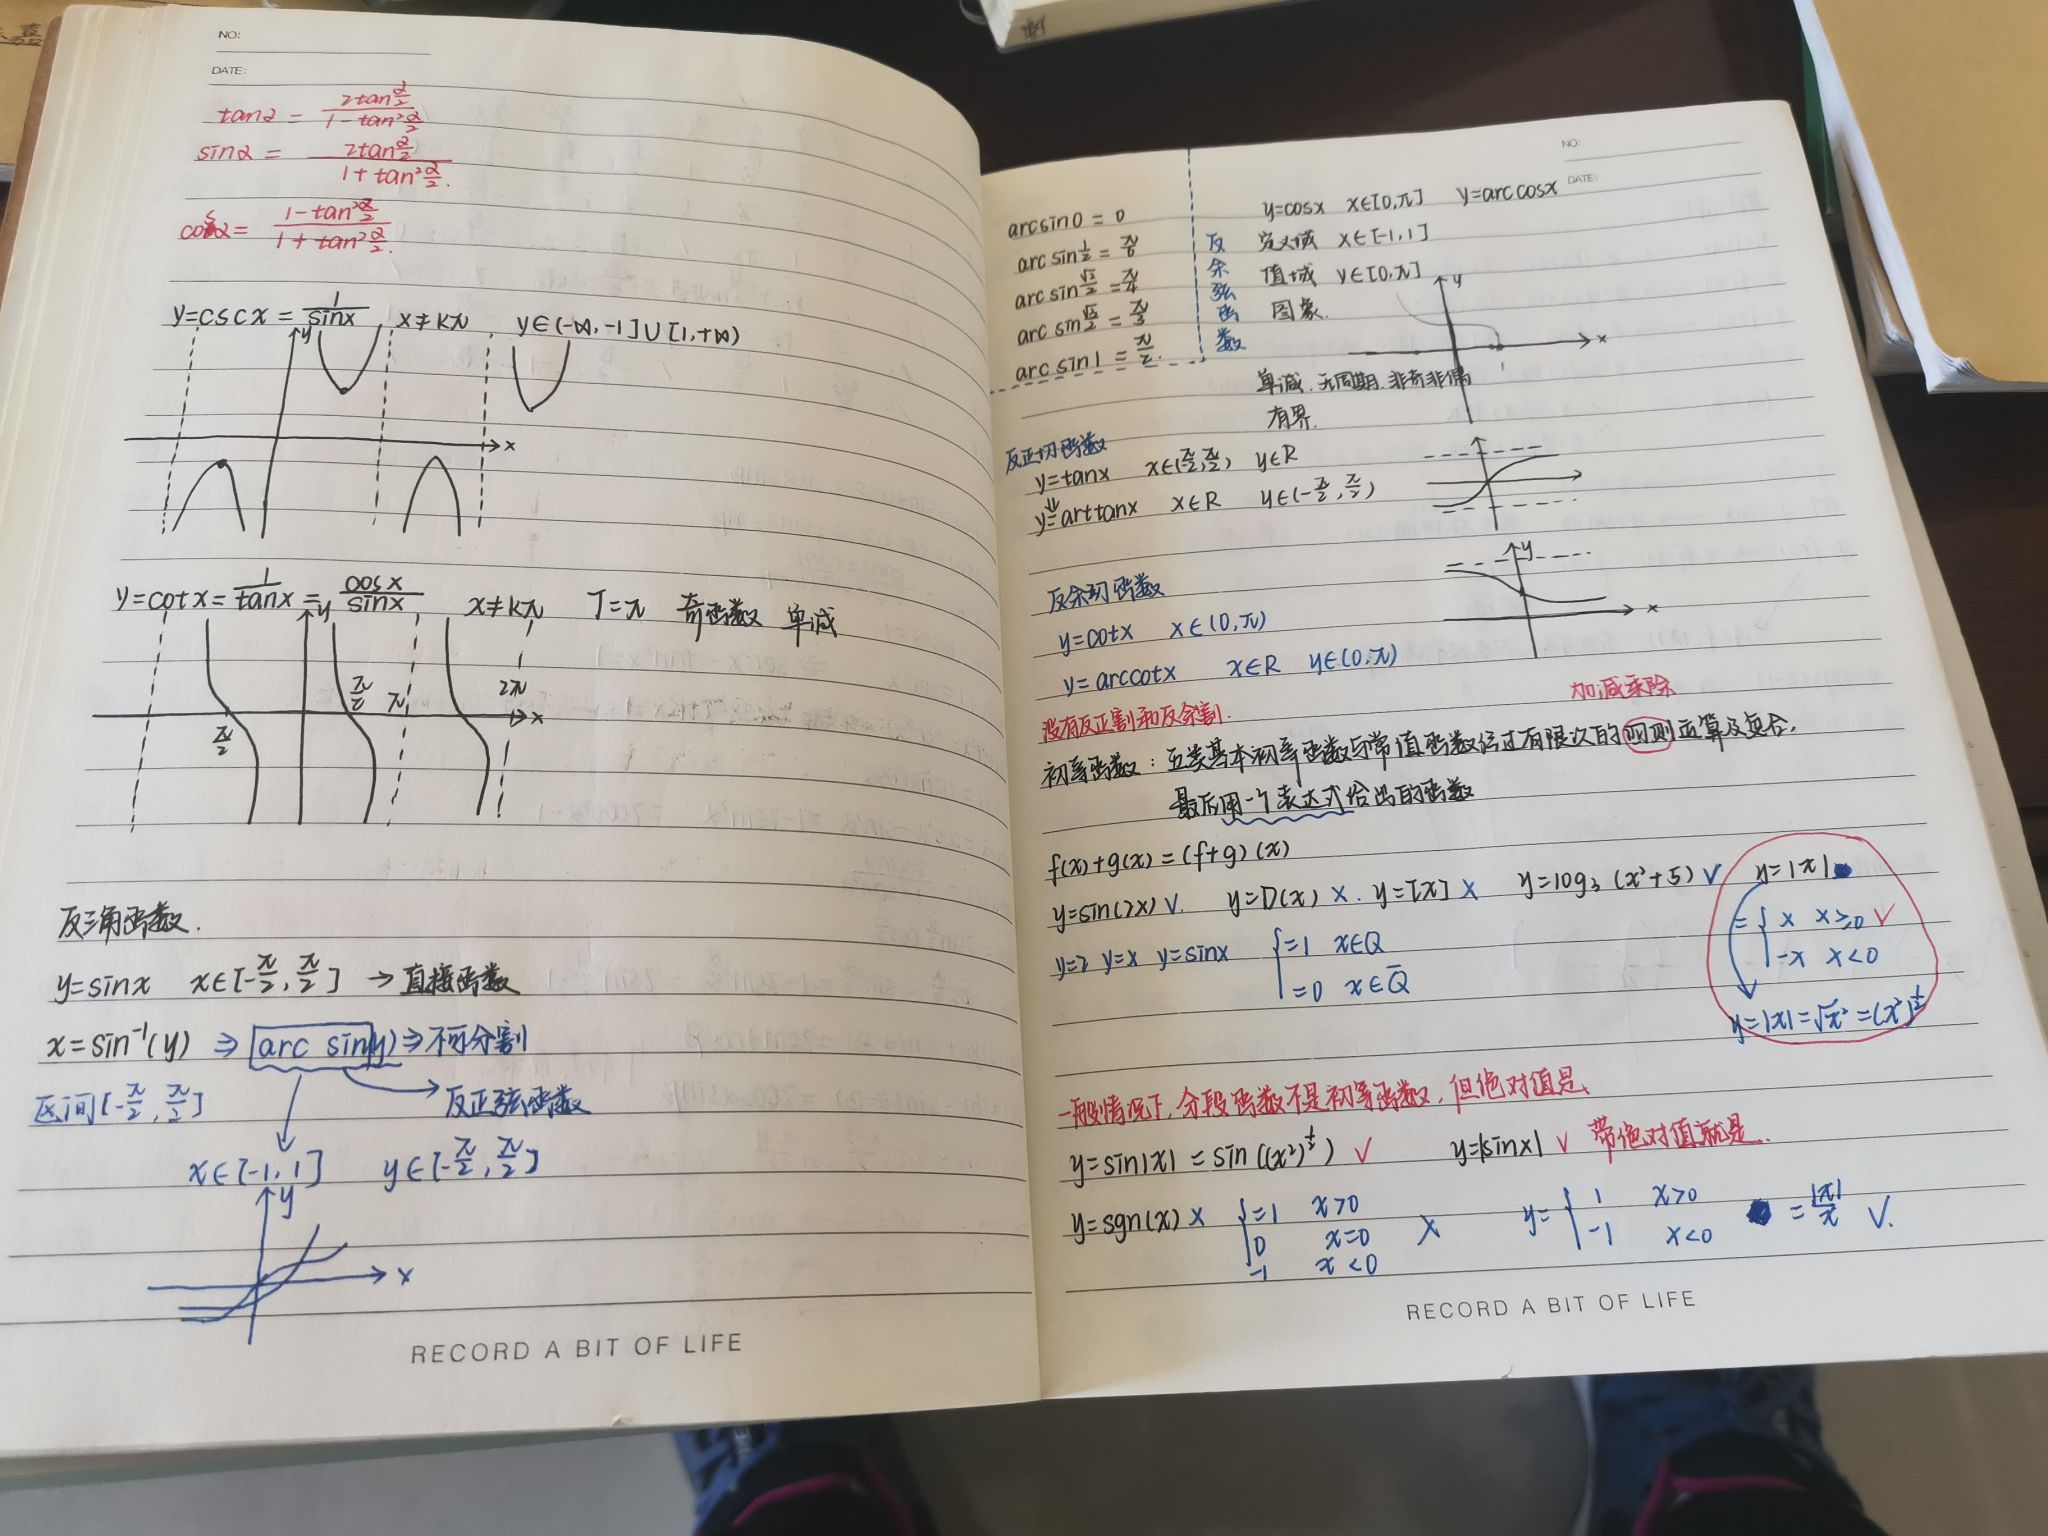 NO:
DATE:
tanα = 2tan α/2 / 1 - tan² α/2
sinα = 2tan α/2 / 1 + tan² α/2.
cosα = 1 - tan² α/2 / 1 + tan² α/2.
y=cscx = 1/sinx x≠kπ y∈(-∞, -1]∪[1, +∞)
y
x
y=cotx = 1/tanx = cosx/sinx x≠kπ T=π 奇函数 单减
y
π/2 π/2 π 2π x
反三角函数.
y=sinx x∈[-π/2, π/2] → 直接函数
x=sin⁻¹(y) ⇒ arc sin(y) ⇒ 不可分割
区间[-π/2, π/2] 反正弦函数
x∈[-1, 1] y∈[-π/2, π/2]
y
x
RECORD A BIT OF LIFE
NO:
DATE:
arcsin0 = 0
arcsin 1/2 = π/6
arcsin √2/2 = π/4
arcsin1 = π/2.
反余弦函数
y=cosx x∈[0,π] y=arccosx
定义域 x∈[-1,1]
值域 y∈[0,π]
图象.
y
x
1
单减. 无周期. 非奇非偶
有界.
反正切函数
y=tanx x∈(π/2, π/2) y∈R
y=arttanx x∈R y∈(-π/2, π/2)
反余切函数
y
x
y=cotx x∈(0,π)
y=arccotx x∈R y∈(0,π)
没有反正割和反余割.
加减乘除
初等函数: 五类基本初等函数与常值函数经过有限次的四则运算及复合,
最后用一个表达式给出的函数
f(x)+g(x)=(f+g)(x)
y=sin(2x) √. y=D(x) ×. y=[x] × y=log₃(x²+5) √ y=|x|
y=2 y=x y=sinx { =1 x∈Q
=0 x∈Q̄
= { x x≥0 √
-x x<0
y=|x|=√x²=(x²)^½
一般情况下, 分段函数不是初等函数, 但绝对值是.
y=sin|x| = sin((x²)^½) √ y=|sinx| √ 带绝对值就是.
y=sgn(x) × { =1 x>0
0 x=0 ×
-1 x<0
y= { 1 x>0
-1 x<0 = |x|/x √.
RECORD A BIT OF LIFE